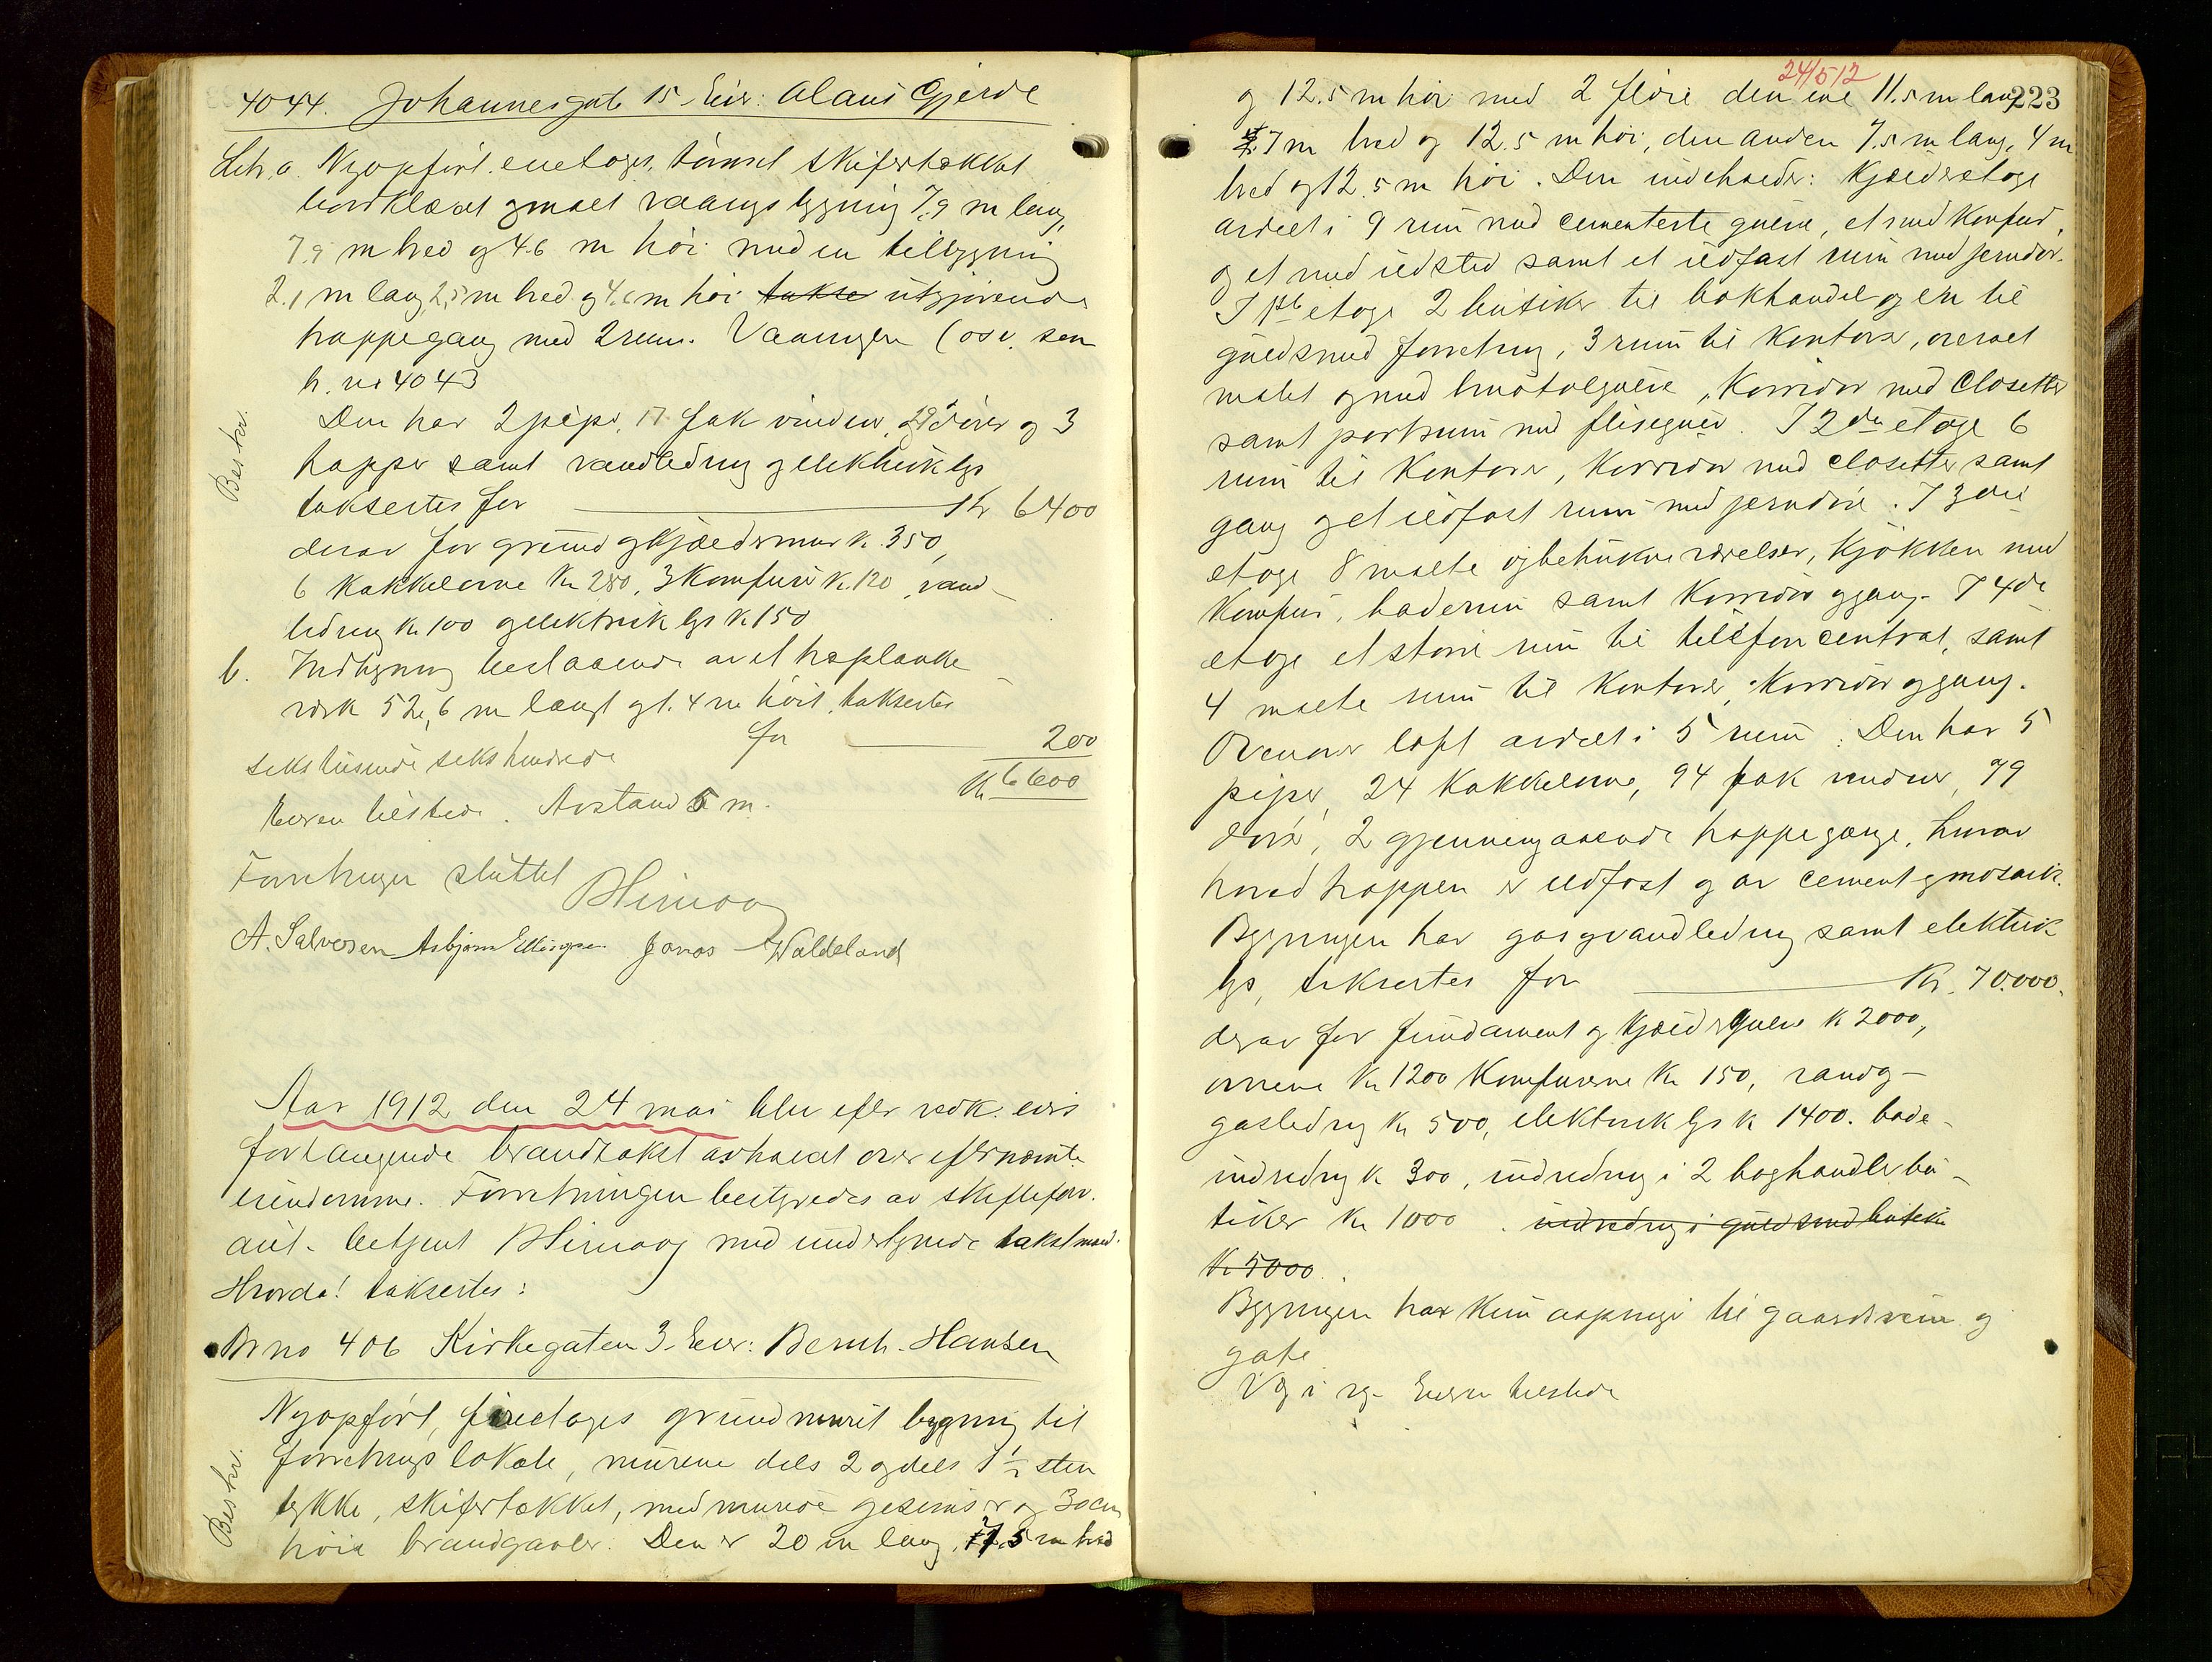 4044. Johannesgate 15. Eier: Olaus Gjerde
Litr. a. Nyopført enetages, tømret skifertækket
bordklædt og malt vaaningsbygning 7.9 m lang,
7.9 m bred og 4.6 m høi med en tilbygning
2.1 m lang, 2.5 m bred og 4.6 m høi takse utgjørende
trappegang med 2 rum. Vaaningen (osv. som
h. no 4043
Den har 2 piper, 17 fak vinduer, 22 dører og 3
trapper samt vandledning og elektrisk lys
taksertes for Kr 6400
derav for grund og kjældermur kr. 350,
6 kakkelovne Kr 280, 3 komfurer kr. 120, vand-
ledning kr 100 og elektrisk lys kr 150
b. Indhegning bestaaende av et træplanke-
verk 52.6 m langt og 1.4 m høit, taksertes
for 200
sekstusinde sekshundrede Kr 6600
Eieren tilstede. Avstand 5 m.
Forretningen sluttet
A. Salvesen Asbjørn Ellingsen Jonas Waldeland
Bes. hv.
Aar 1912 den 24 mai blev efter vedk. eiers
forlangende brandtakst avholdt over efternævnte
eiendomme. Forretningen bestyredes av skiftefor.
aut. betjent med undertegnede takstmænd.
Hvorda! taksertes:
Br no 406 Kirkegaten 3. Eier: Bernh. Hansen
Nyopført, fireetages grundmuret bygning til
forretningslokale, murene dels 2 og dels 1½ sten
tykke, skifertækket, med murede gesimser og 30 cm
høie brandgavler. Den er 20 m lang, 7.5 m bred
Bes. hv.
24/5 12
223
og 12.5 m høi med 2 fløie den ene 11.5 m lang
7 m bred og 12.5 m høi, den anden 7.5 m lang, 4 m
bred og 12.5 m høi. Den indeholder: Kjælderetage
avdelt i 9 rum med cementerte gulve, et med komfur,
og et med ildsted samt et ildfast rum med jerndør.
I 1ste etage 2 butiker til bokhandel og en til
guldsmed forretning, 3 rum til kontorer, overalt
malet og med linoleumgulve, korridor med closetter
samt portrum med flisegulv. I 2den etage 6
rum til kontorer, korridor med closetter samt
gang og et ildfast rum med jerndør. I 3die
etage 8 malte og betrukne værelser, kjøkken med
komfur, baderum samt korridor og gang. I 4de
etage et større rum til telefoncentral, samt
4 malte rum til kontorer, korridor og gang.
Ovenover loft avdelt i 5 rum. Den har 5
piper, 24 kakkelovne, 94 fak vinduer, 79
dører, 2 gjennemgaaende trappegange, hvorav
hovedtrappen er ildfast og av cement og mosaik.
Bygningen har gas og vandledning samt elektrisk
lys, taksertes for Kr. 70.000.
derav for fundament og kjældergulve kr 2000,
ovnene Kr 1200 komfurerne Kr 150, vand og
gasledning kr 500, elektrisk lys kr 1400. bade-
indredning kr 300, indredning i 2 boghandlerbu-
tiker kr 1000. indredning i guldsmedbutiken
Kr 5000.
Bygningen har kun aapninger til gaardsrum og
gate.
Eieren tilstede